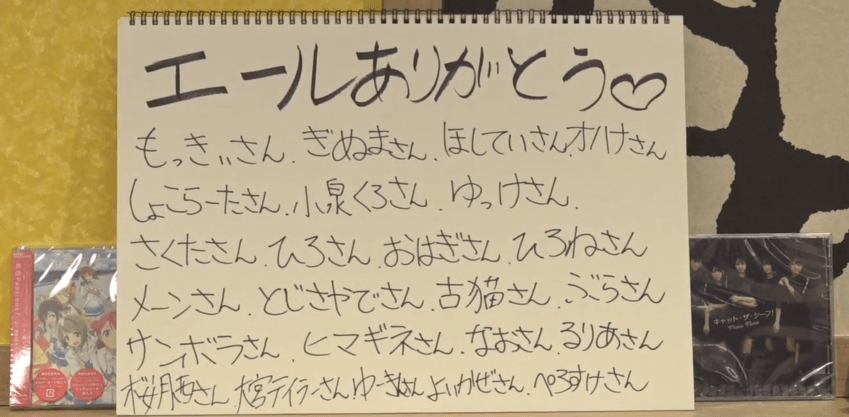 エールありがとう♡
もっきぃさん、ぎぬまさん、ほしていさん、オハナさん
しょこらーたさん、小泉くろさん、ゆっけさん、
さくたさん、ひろさん、おはぎさん、ひろねさん
メーンさん、とじさやでさん、古猫さん、ぶらさん
サンボラさん、ヒマギネさん、なおさん、るりあさん
桜月あさん、大宮テイラーさん、ゆーきさん、よいかぜさん、ぺろすけさん
キャット・ザ・シーフ!